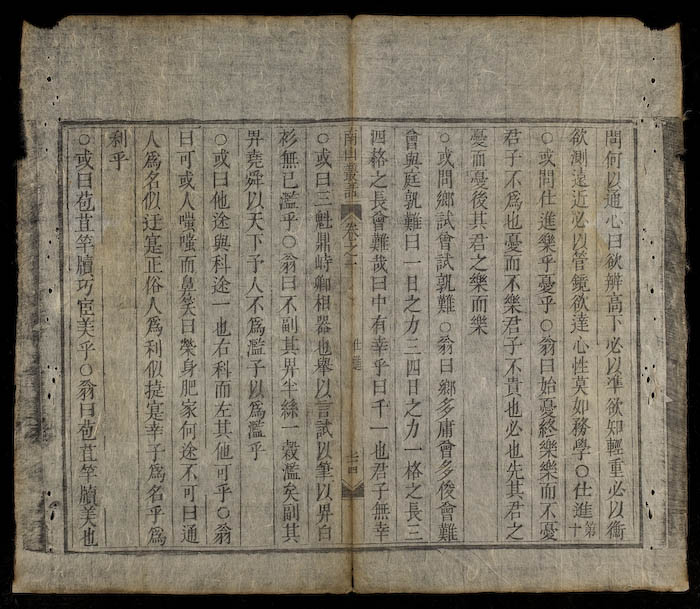 問何以通心曰欲辨高下必以準欲知輕重必以衡
欲測遠近必以管鏡欲達心性莫如務學○仕進第十
○或問仕進樂乎憂乎○翁曰始憂終樂樂而不憂
君子不為也憂而不樂君子不貴也必也先其君之
憂而憂後其君之樂而樂
○或問鄉試會試孰難○翁曰鄉多庸會多俊會難
會與庭孰難曰一日之力三四日之力一格之長三
四格之長會難哉曰中有幸乎曰千一也君子無幸
南山叢語 卷之一 仕進 七四
○或曰三魁鼎峙卿相器也舉以言試以筆以畀白
衫無已濫乎○翁曰不副其畀半絲一穀濫矣副其
畀堯舜以天下予人不為濫子以為濫乎
○或曰他途與科途一也右科而左其他可乎○翁
曰可或人嗤嗤而鼻笑曰榮身肥家何途不可曰通
人為名似迂寔正俗人為利似捷寔幸子為名乎為
利乎
○或曰苞苴竿牘巧宦美乎○翁曰苞苴竿牘美也